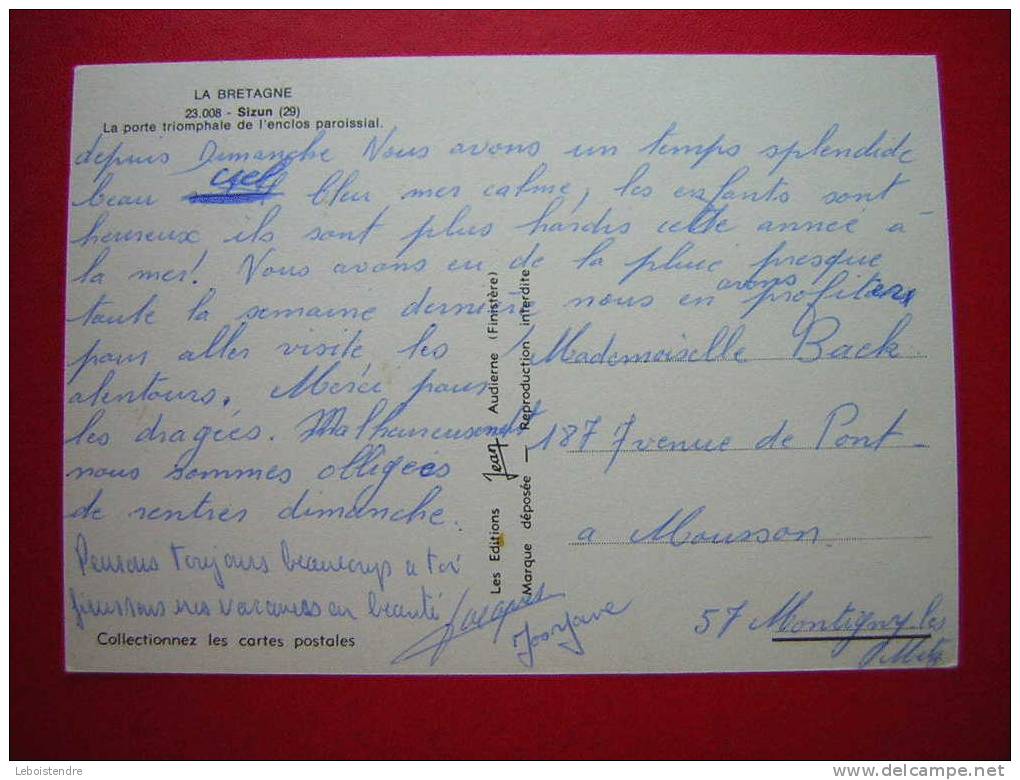 LA BRETAGNE
23.008 - Sizun (29)
La porte triomphale de l'enclos paroissial.
depuis Dimanche Nous avons un temps splendide
beau ciel bleu mer calme, les enfants sont
heureux ils sont plus hardis cette année à
la mer! Nous avons eu de la pluie presque
toute la semaine dernière nous en avons profiter
pour aller visité les
alentours. Merci pour
les dragées. Malheureusement
nous sommes obligées
de rentrer dimanche.
Pensons toujours beaucoup a toi
finissons nos vacances en beauté
Jacques
Collectionnez les cartes postales
Les Editions Jean Audierne (Finistère)
Marque déposée — Reproduction interdite
Mademoiselle Back
187 Avenue de Pont-
a Mousson
57 Montigny les
Metz
Leboistendre
delcampe.net